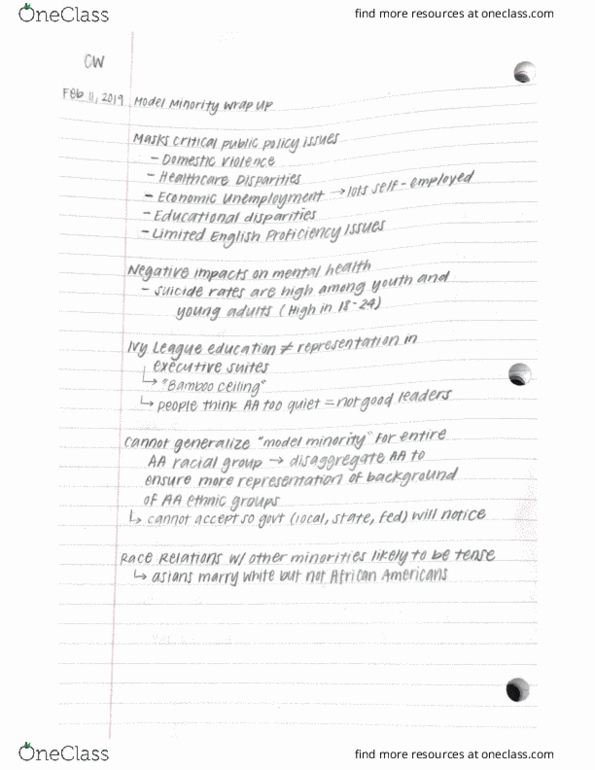 OneClass
find more resources at oneclass.com
CW
Feb 11, 2019 Model Minority Wrap Up
Masks critical public policy issues
- Domestic Violence
- Healthcare Disparities
- Economic Unemployment → lots self-employed
- Educational disparities
- Limited English Proficiency Issues
Negative impacts on mental health
- suicide rates are high among youth and
young adults (High in 18-24)
Ivy League education ≠ representation in
executive suites
↳ "Bamboo ceiling"
↳ people think AA too quiet = not good leaders
Cannot generalize "model minority" for entire
AA racial group → disaggregate AA to
ensure more representation of background
of AA ethnic groups
↳ cannot accept so govt (local, state, fed) will notice
Race Relations w/ other minorities likely to be tense
↳ asians marry white but not African Americans
OneClass
find more resources at oneclass.com